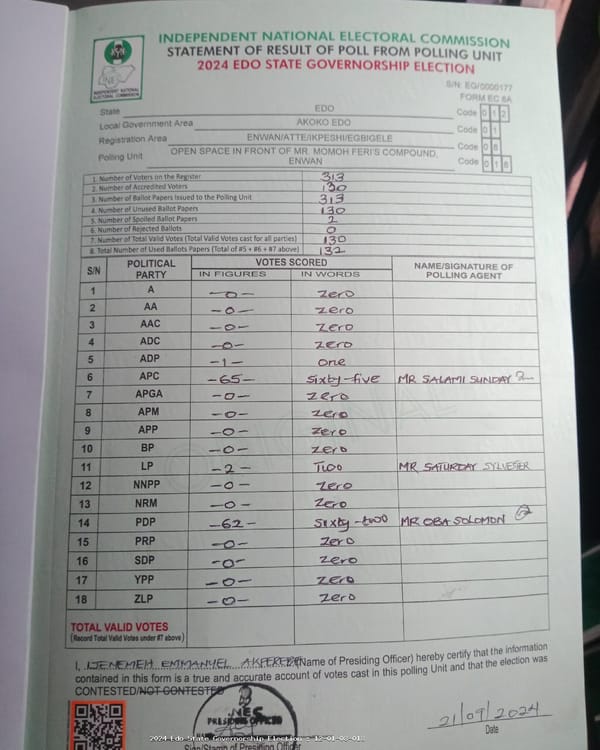 INDEPENDENT NATIONAL ELECTORAL COMMISSION
STATEMENT OF RESULT OF POLL FROM POLLING UNIT
2024 EDO STATE GOVERNORSHIP ELECTION
INDEPENDENT NATIONAL
ELECTORAL COMMISSION
S/N: EG/0000177
FORM EC 8A
State EDO Code 0 1 2
Local Government Area AKOKO EDO Code 0 1
Registration Area ENWAN/ATTE/IKPESHI/EGBIGELE Code 0 8
Polling Unit OPEN SPACE IN FRONT OF MR. MOMOH FERI'S COMPOUND, ENWAN Code 0 1 8
1. Number of Voters on the Register 313
2. Number of Accredited Voters 130
3. Number of Ballot Papers Issued to the Polling Unit 313
4. Number of Unused Ballot Papers 130
5. Number of Spoiled Ballot Papers 2
6. Number of Rejected Ballots 0
7. Number of Total Valid Votes (Total Valid Votes cast for all parties) 130
8. Total Number of Used Ballots Papers (Total of #5 + #6 + #7 above) 132
S/N POLITICAL PARTY VOTES SCORED NAME/SIGNATURE OF POLLING AGENT
IN FIGURES IN WORDS
1 A -0- zero
2 AA -0- zero
3 AAC -0- zero
4 ADC -0- zero
5 ADP -1- one
6 APC -65- sixty-five MR SALAMI SUNDAY
7 APGA -0- zero
8 APM -0- zero
9 APP -0- zero
10 BP -0- zero
11 LP -2- Two MR SATURDAY SYLVESTER
12 NNPP -0- zero
13 NRM -0- zero
14 PDP -62- sixty-two MR OBA SOLOMON
15 PRP -0- zero
16 SDP -0- zero
17 YPP -0- zero
18 ZLP -0- zero
TOTAL VALID VOTES
(Record Total Valid Votes under #7 above)
I, IJENEMEH EMMANUEL (Name of Presiding Officer) hereby certify that the information
contained in this form is a true and accurate account of votes cast in this polling Unit and that the election was
CONTESTED/NOT CONTESTED
PRESIDING OFFICER
21/09/2024
Date
2024 Edo State Governorship Election - 12-01-08-018
Sign/Stamp of Presiding Officer